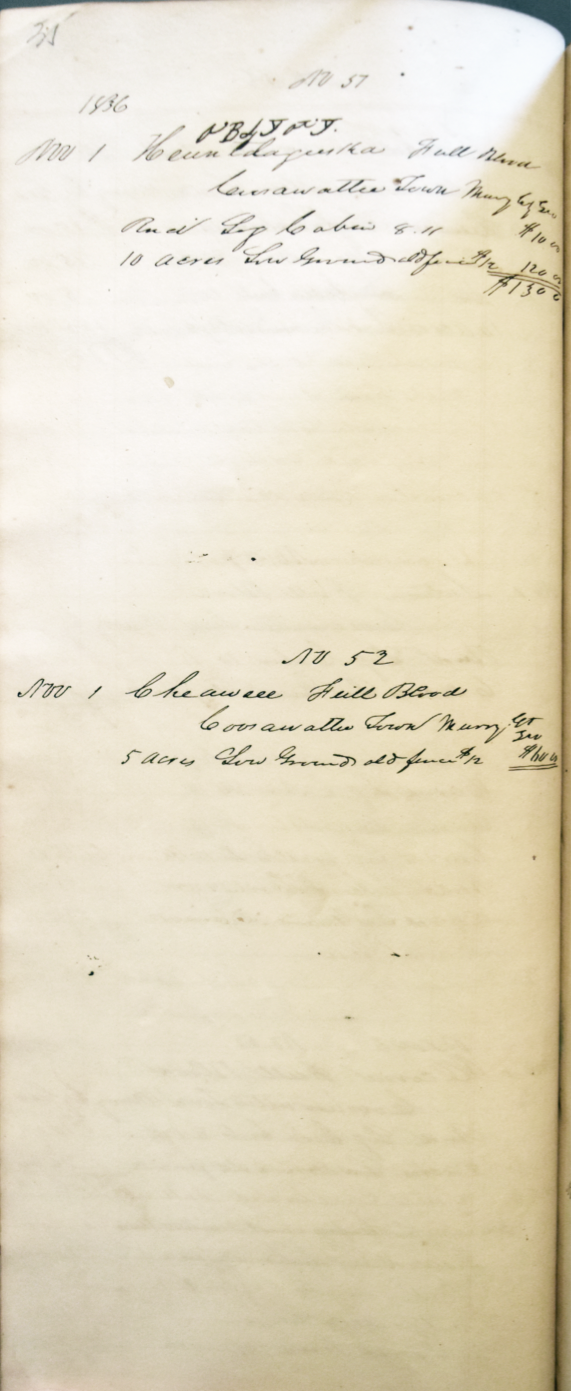 No 51
1836
Nov 1 Full Blood
Coosawattee Town Murry Cty Geo
Log Cabin 8.11 $10 00
10 acres Low Ground old fence $12 120 00
$130 00
No 52
Nov 1 Cheawee Full Blood
Coosawattee Town Murry Cty
Geo
5 acres Low Ground old fence $12 $60 00